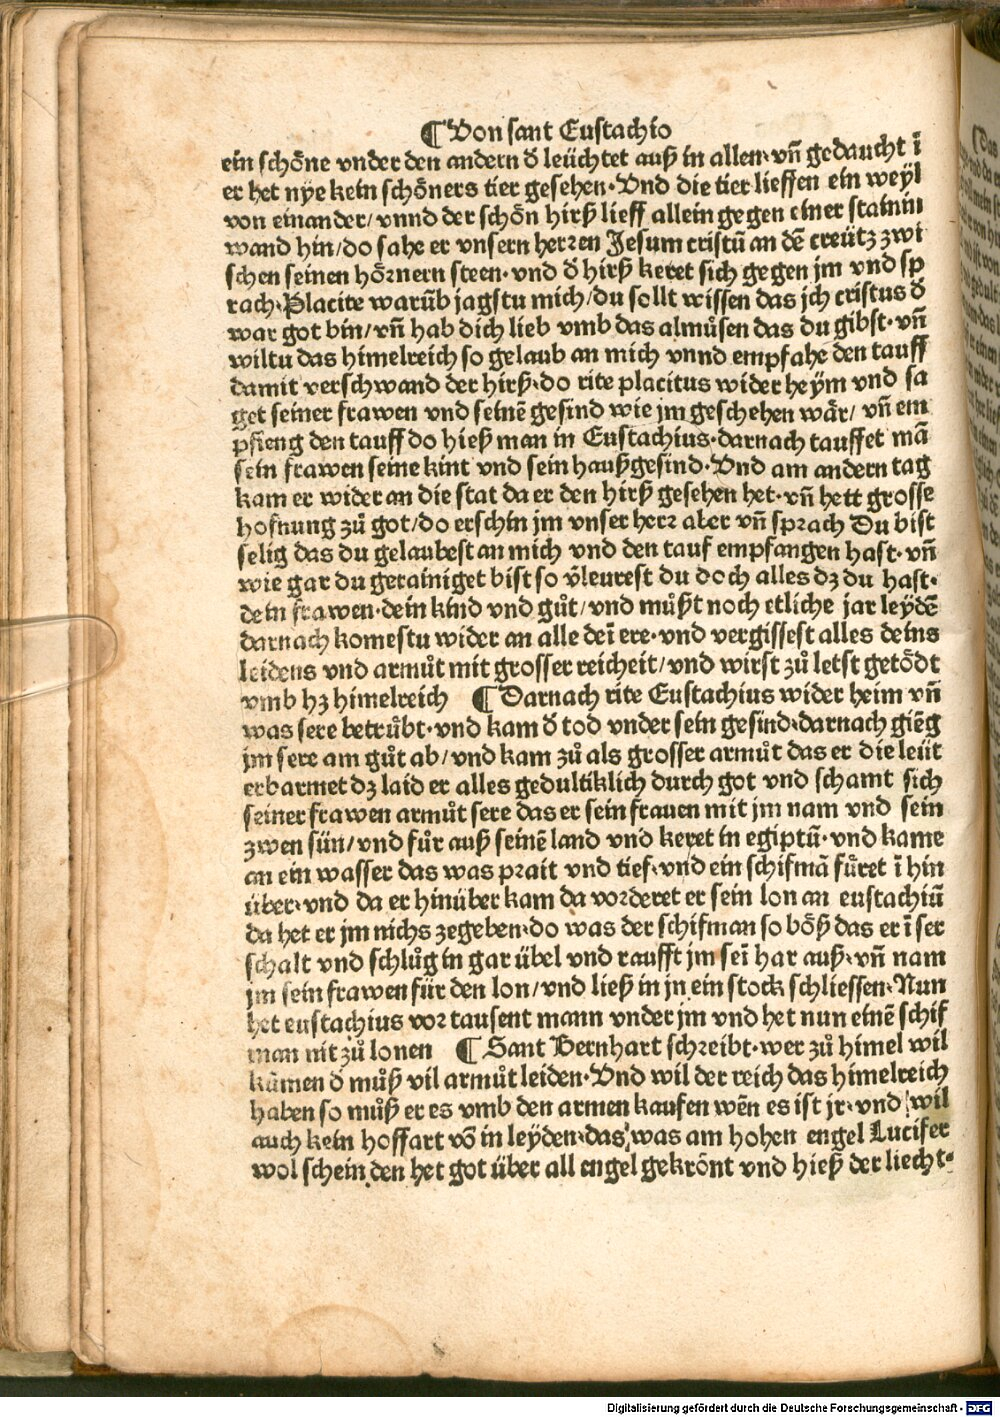 ¶ Von sant Eustachio
ein schöne vnder den andern d̄ leüchtet auß in allen· vñ gedaucht ī
er het nye kein schöners tier gesehen· Vnd die tier lieffen ein weyl
von einander/ vnnd der schön hirß lieff allein gegen einer stainin
wand hin/ do sahe er vnsern herren Jesum cristū an dē creütz zwi
schen seinen hörnern steen· vnd d̄ hirß keret sich gegen jm vnd sp
rach· Placite warūb jagstu mich/ du sollt wissen das jch cristus d̄
war got bin/ vñ hab dich lieb vmb das almůsen das du gibst· vñ
wiltu das himelreich so gelaub an mich vnnd empfahe den tauff
damit verschwand der hirß· do rite placitus wider heÿm vnd sa
get seiner frawen vnd seinē gesind wie jm geschehen wär/ vñ em
pfieng den tauff do hieß man in Eustachius· darnach tauffet mā
sein frawen seine kint vnd sein haußgesind· Vnd am andern tag
kam er wider an die stat da er den hirß gesehen het· vñ hett grosse
hofnung zů got/ do erschin jm vnser herr aber vñ sprach Du bist
selig das du gelaubest an mich vnd den tauf empfangen hast· vñ
wie gar du gerainiget bist so v̄leurest du doch alles dz du hast·
dein frawen· dein kind vnd gůt/ vnd můßt noch etliche jar leydē
darnach komestu wider an alle deī ere· vnd vergissest alles deins
leidens vnd armůt mit grosser reicheit/ vnd wirst zů letst getödt
vmb hz himelreich ¶ Darnach rite Eustachius wider heim vñ
was sere betrůbt· vnd kam d̄ tod vnder sein gesind· darnach giēg
jm sere am gůt ab/ vnd kam zů als grosser armůt das er die leüt
erbarmet dz laid er alles gedultiklich durch got vnd schamt sich
seiner frawen armůt sere das er sein frauen mit jm nam vnd sein
zwen sün/ vnd fůr auß seinē land vnd keret in egiptū· vnd kame
an ein wasser das was prait vnd tief· vnd ein schifmā füret ī hin
über· vnd da er hinüber kam da vorderet er sein lon an eustachiū
da het er jm nichs zegeben· do was der schifman so böß das er ī ser
schalt vnd schlůg in gar übel vnd raufft jm seī har auß· vñ nam
jm sein frawen für den lon/ vnd ließ in jn ein stock schliessen· Nun
het eustachius vor tausent mann vnder jm vnd het nun einē schif
man nit zů lonen ¶ Sant Bernhart schreibt· wer zů himel wil
kūmen d̄ můß vil armůt leiden· Vnd wil der reich das himelreich
haben so můß er es vmb den armen kaufen wēn es ist jr· vnd wil
auch kein hoffart vō in leyden· das was am hohen engel Lucifer
wol schein den het got über all engel gekrönt vnd hieß der liecht·
Digitalisierung gefördert durch die Deutsche Forschungsgemeinschaft - DFG